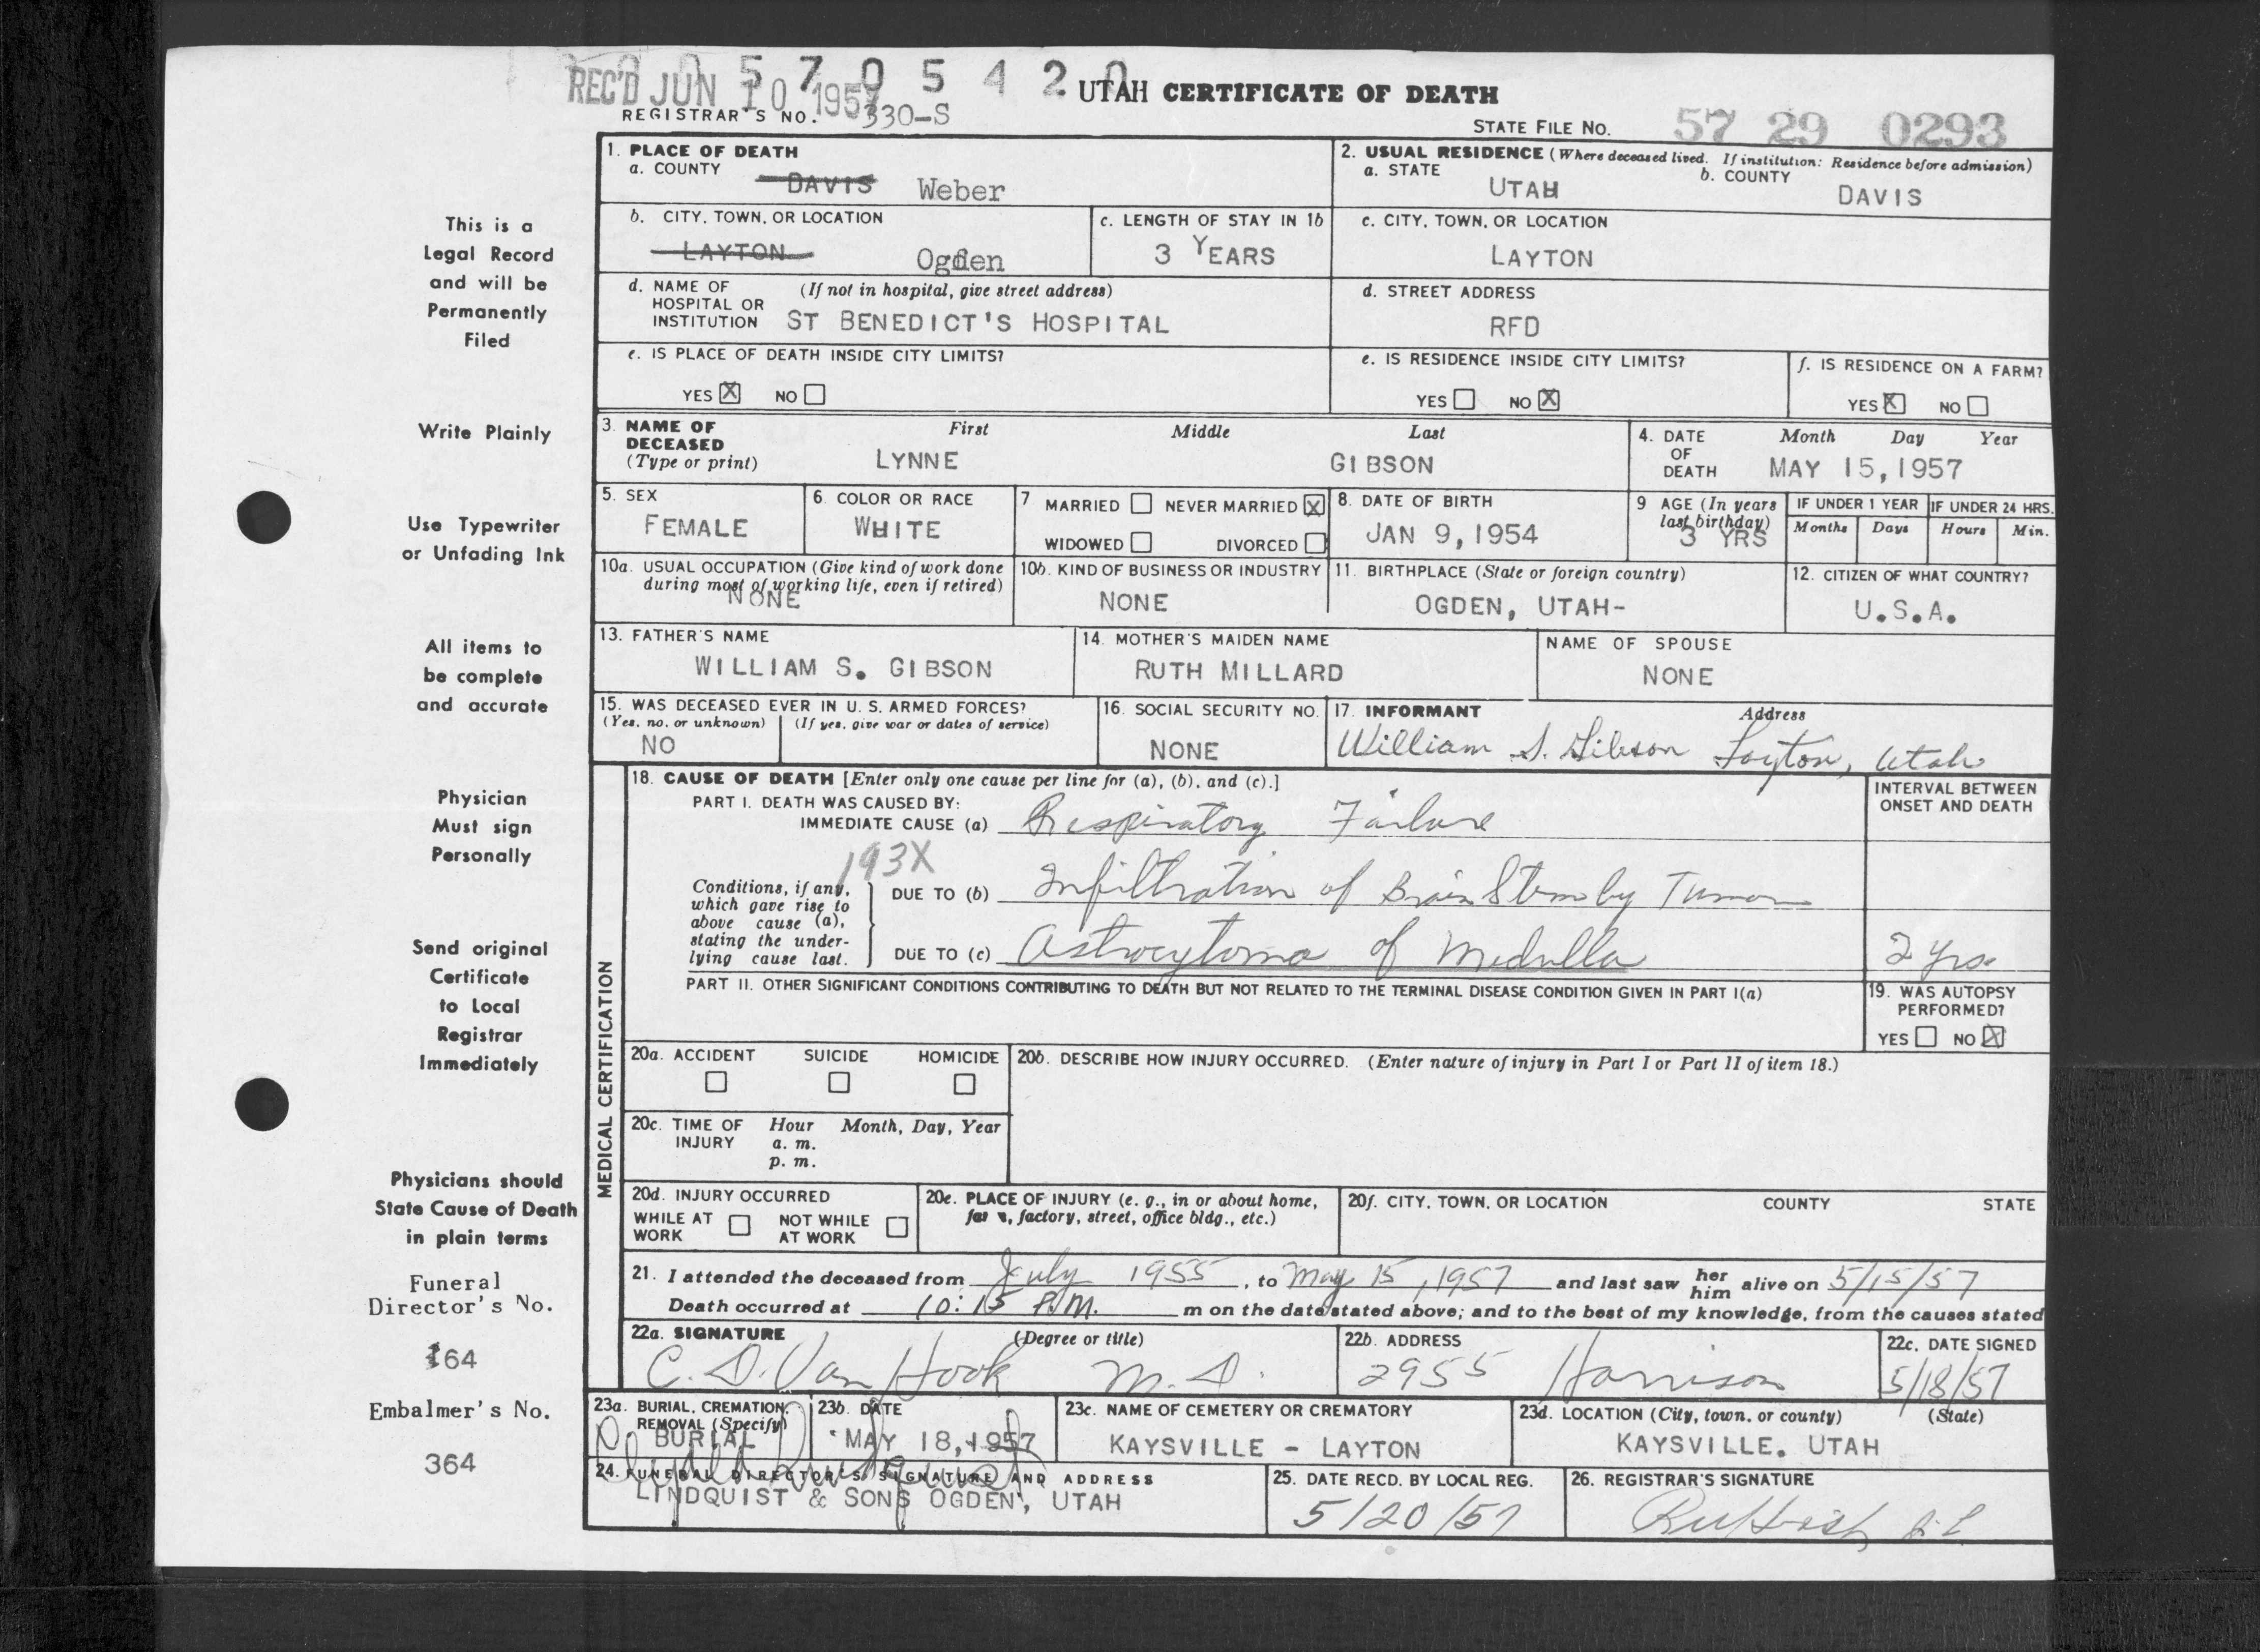 5 7 0 5 4 2 0
REC'D JUN 10 1957
UTAH CERTIFICATE OF DEATH
REGISTRAR'S NO. 330-S
STATE FILE NO. 57 29 0293
1. PLACE OF DEATH
a. COUNTY DAVIS Weber
2. USUAL RESIDENCE (Where deceased lived. If institution: Residence before admission)
a. STATE UTAH b. COUNTY DAVIS
b. CITY, TOWN, OR LOCATION LAYTON Ogden
c. LENGTH OF STAY IN 1b 3 YEARS
c. CITY, TOWN, OR LOCATION LAYTON
d. NAME OF HOSPITAL OR INSTITUTION (If not in hospital, give street address) ST BENEDICT'S HOSPITAL
d. STREET ADDRESS RFD
e. IS PLACE OF DEATH INSIDE CITY LIMITS? YES X NO
e. IS RESIDENCE INSIDE CITY LIMITS? YES NO X
f. IS RESIDENCE ON A FARM? YES X NO
3. NAME OF DECEASED (Type or print) First Middle Last
LYNNE GIBSON
4. DATE OF DEATH Month Day Year
MAY 15, 1957
5. SEX FEMALE
6. COLOR OR RACE WHITE
7 MARRIED NEVER MARRIED X
WIDOWED DIVORCED
8. DATE OF BIRTH JAN 9, 1954
9 AGE (In years last birthday) 3 YRS
IF UNDER 1 YEAR Months Days
IF UNDER 24 HRS. Hours Min.
10a. USUAL OCCUPATION (Give kind of work done during most of working life, even if retired) NONE
10b. KIND OF BUSINESS OR INDUSTRY NONE
11. BIRTHPLACE (State or foreign country) OGDEN, UTAH-
12. CITIZEN OF WHAT COUNTRY? U.S.A.
13. FATHER'S NAME WILLIAM S. GIBSON
14. MOTHER'S MAIDEN NAME RUTH MILLARD
NAME OF SPOUSE NONE
15. WAS DECEASED EVER IN U. S. ARMED FORCES?
(Yes, no, or unknown) (If yes, give war or dates of service)
NO
16. SOCIAL SECURITY NO. NONE
17. INFORMANT Address
William S. Gibson Layton, Utah
18. CAUSE OF DEATH [Enter only one cause per line for (a), (b), and (c).]
INTERVAL BETWEEN ONSET AND DEATH
PART I. DEATH WAS CAUSED BY:
IMMEDIATE CAUSE (a) Respiratory Failure
193X
Conditions, if any, which gave rise to above cause (a), stating the underlying cause last.
DUE TO (b) Infiltration of Brain Stem by Tumor
DUE TO (c) Astrocytoma of Medulla 2 yrs
PART II. OTHER SIGNIFICANT CONDITIONS CONTRIBUTING TO DEATH BUT NOT RELATED TO THE TERMINAL DISEASE CONDITION GIVEN IN PART I(a)
19. WAS AUTOPSY PERFORMED?
YES NO X
20a. ACCIDENT SUICIDE HOMICIDE
20b. DESCRIBE HOW INJURY OCCURRED. (Enter nature of injury in Part I or Part II of item 18.)
20c. TIME OF INJURY Hour Month, Day, Year
a. m.
p. m.
20d. INJURY OCCURRED
WHILE AT WORK NOT WHILE AT WORK
20e. PLACE OF INJURY (e. g., in or about home, farm, factory, street, office bldg., etc.)
20f. CITY, TOWN, OR LOCATION COUNTY STATE
21. I attended the deceased from July 1955, to May 15, 1957 and last saw her him alive on 5/15/57
Death occurred at 10:15 P.M. m on the date stated above; and to the best of my knowledge, from the causes stated
22a. SIGNATURE (Degree or title)
C. D. Van Hook M. D.
22b. ADDRESS 2955 Harrison
22c. DATE SIGNED 5/18/57
23a. BURIAL, CREMATION, REMOVAL (Specify) BURIAL
23b. DATE MAY 18, 1957
23c. NAME OF CEMETERY OR CREMATORY KAYSVILLE - LAYTON
23d. LOCATION (City, town, or county) (State)
KAYSVILLE. UTAH
24. FUNERAL DIRECTOR'S SIGNATURE AND ADDRESS
LINDQUIST & SONS OGDEN, UTAH
25. DATE RECD. BY LOCAL REG. 5/20/57
26. REGISTRAR'S SIGNATURE
MEDICAL CERTIFICATION
This is a
Legal Record
and will be
Permanently
Filed
Write Plainly
Use Typewriter
or Unfading Ink
All items to
be complete
and accurate
Physician
Must sign
Personally
Send original
Certificate
to Local
Registrar
Immediately
Physicians should
State Cause of Death
in plain terms
Funeral
Director's No.
164
Embalmer's No.
364